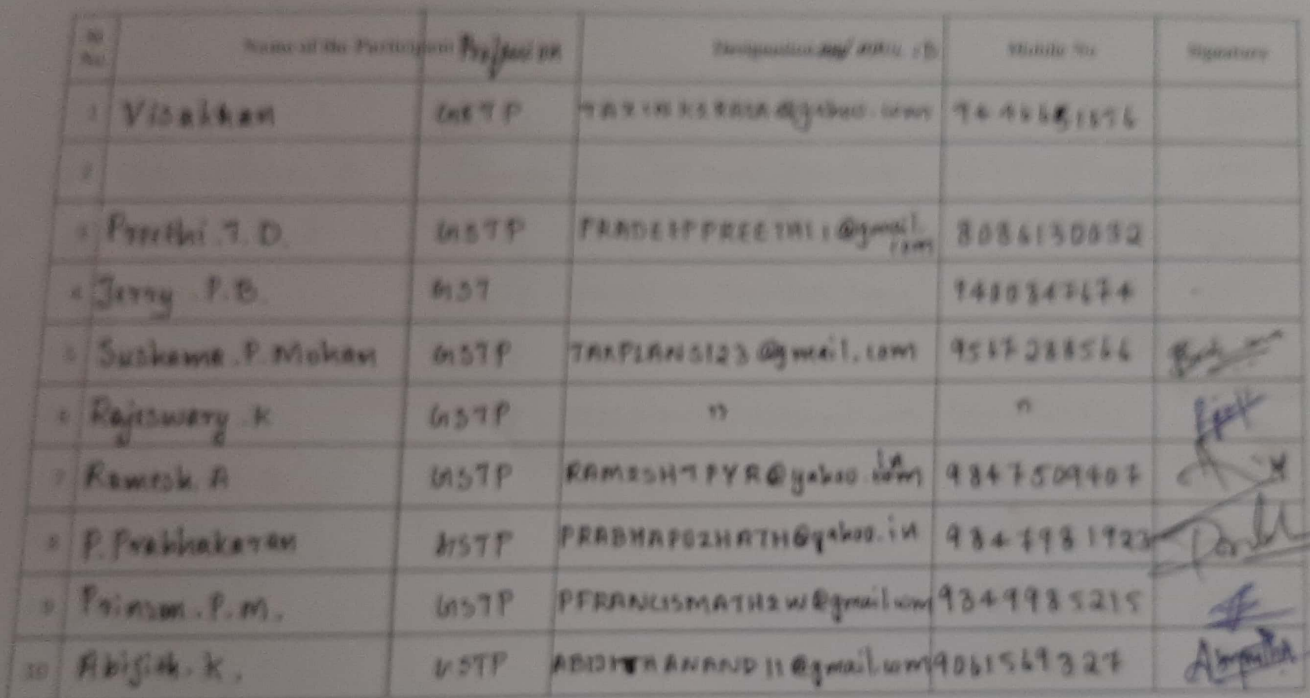 Sl No Name of the Participant Profession Designation Mobile No Signature
1 Visakhan GSTP
2
3 Preethi. T. D. GSTP PRADEEPPREETHI11@gmail.com 8086130032
4 Jerry P.B. GST 9400847674
5 Sushama. P. Mohan GSTP TAXPLANS123@gmail.com 9567288566
6 Rajeswary. K GSTP " "
7 Ramesh. A GSTP RAMESHTPYR@yahoo. 9847509407
8 P. Prabhakaran GSTP PRABHAPOZHATH@yahoo.in 9847981923
9 Prinson. P. M. GSTP PFRANCISMATHEW@gmail.com 9349985215
10 Abijith. K. GSTP 9061569327